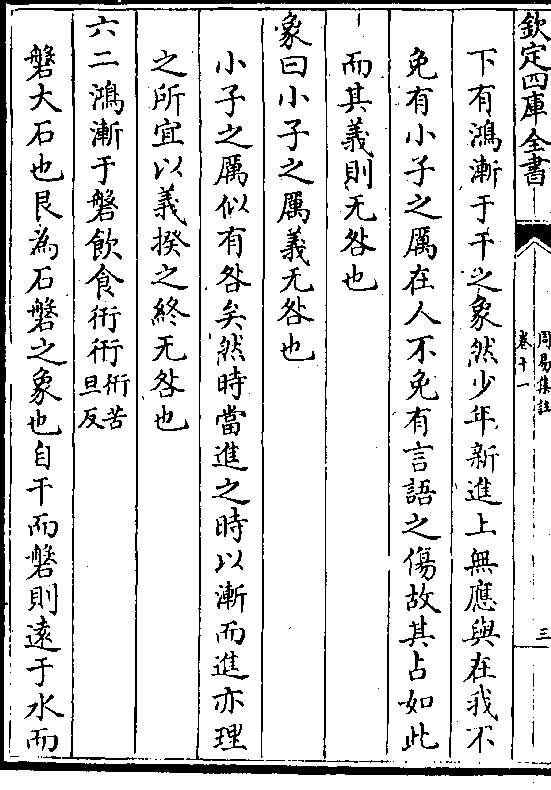 欽定四庫全書
周易集註
卷十一
三
下有鴻漸于干之象然少年新進上無應與在我不
免有小子之厲在人不免有言語之傷故其占如此
而其義則无咎也
象曰小子之厲義无咎也
小子之厲似有咎矣然時當進之時以漸而進亦理
之所宜以義揆之終无咎也
六二鴻漸于磐飲食衎衎衎苦旦反
磐大石也艮為石磐之象也自干而磐則遠于水而